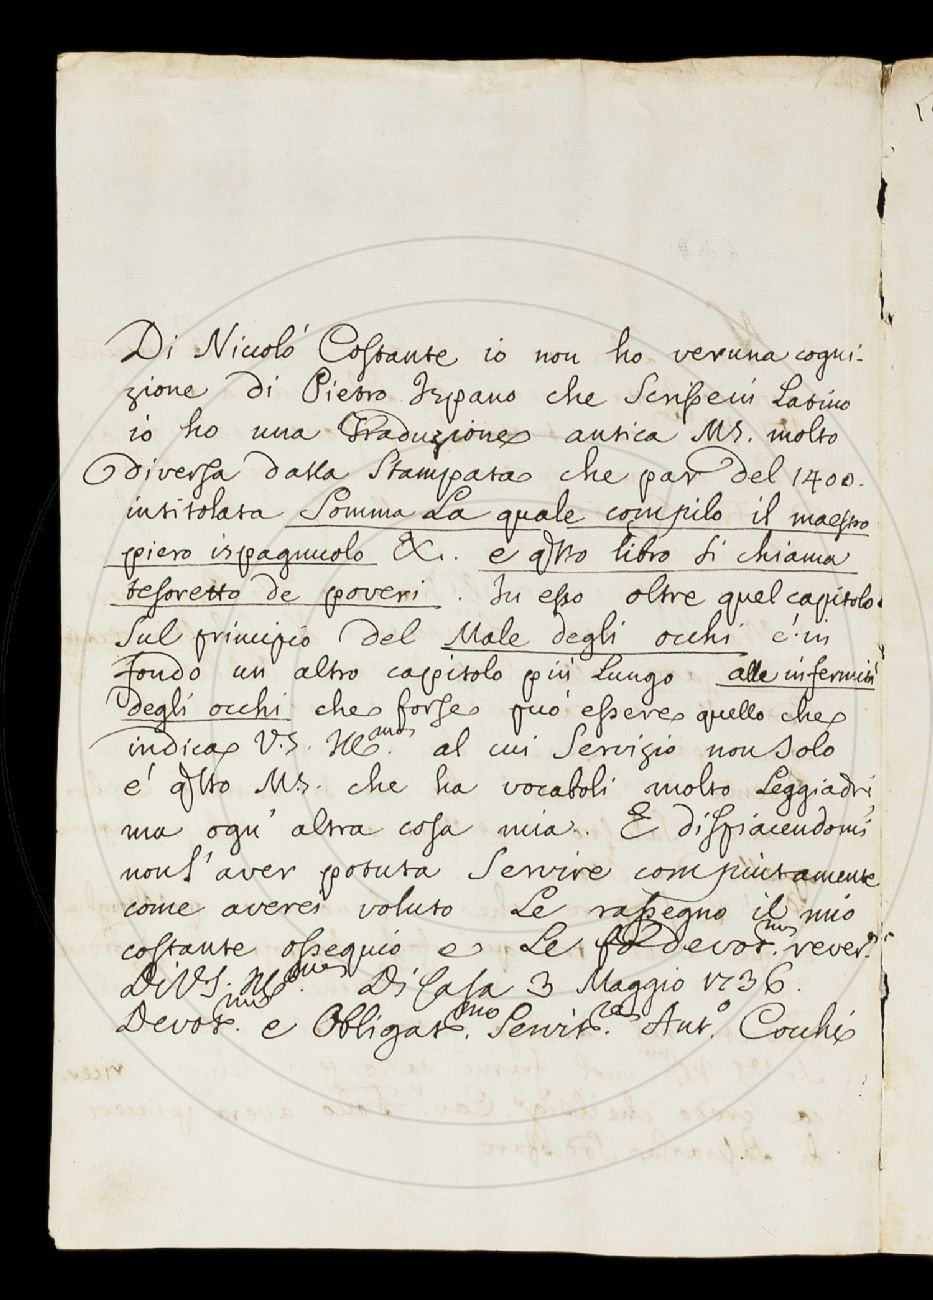 Di Niccoló Costante io non ho veruna cogni-
zione di Pietro Ispano che Scrisse in Latino
io ho una Traduzione antica MS. molto
diversa dalla Stampata che par del 1400.
intitolata Somma La quale compilo il maestro
piero ispagnuolo &c. e qsto libro si chiama
tesoretto de poveri . In esso oltre quel capitolo
sul principio del Male degli occhi é in
fondo un altro capitolo piú Lungo alle infermità
degli occhi che forse può essere quello che
indica V.S. Illma. al cui Servizio non Solo
é qsto MS. che ha vocaboli molto Leggiadri
ma ogn' altra cosa mia. E dispiacendomi
non l' aver potuta Servire compiutamente
come averei voluto Le rassegno il mio
costante ossequio e Le fo devotma. rever.
Di VS. Illma. Di Casa 3 Maggio 1736.
Devotmo. e Obligatmo. Servitre. Ant.o Cocchi